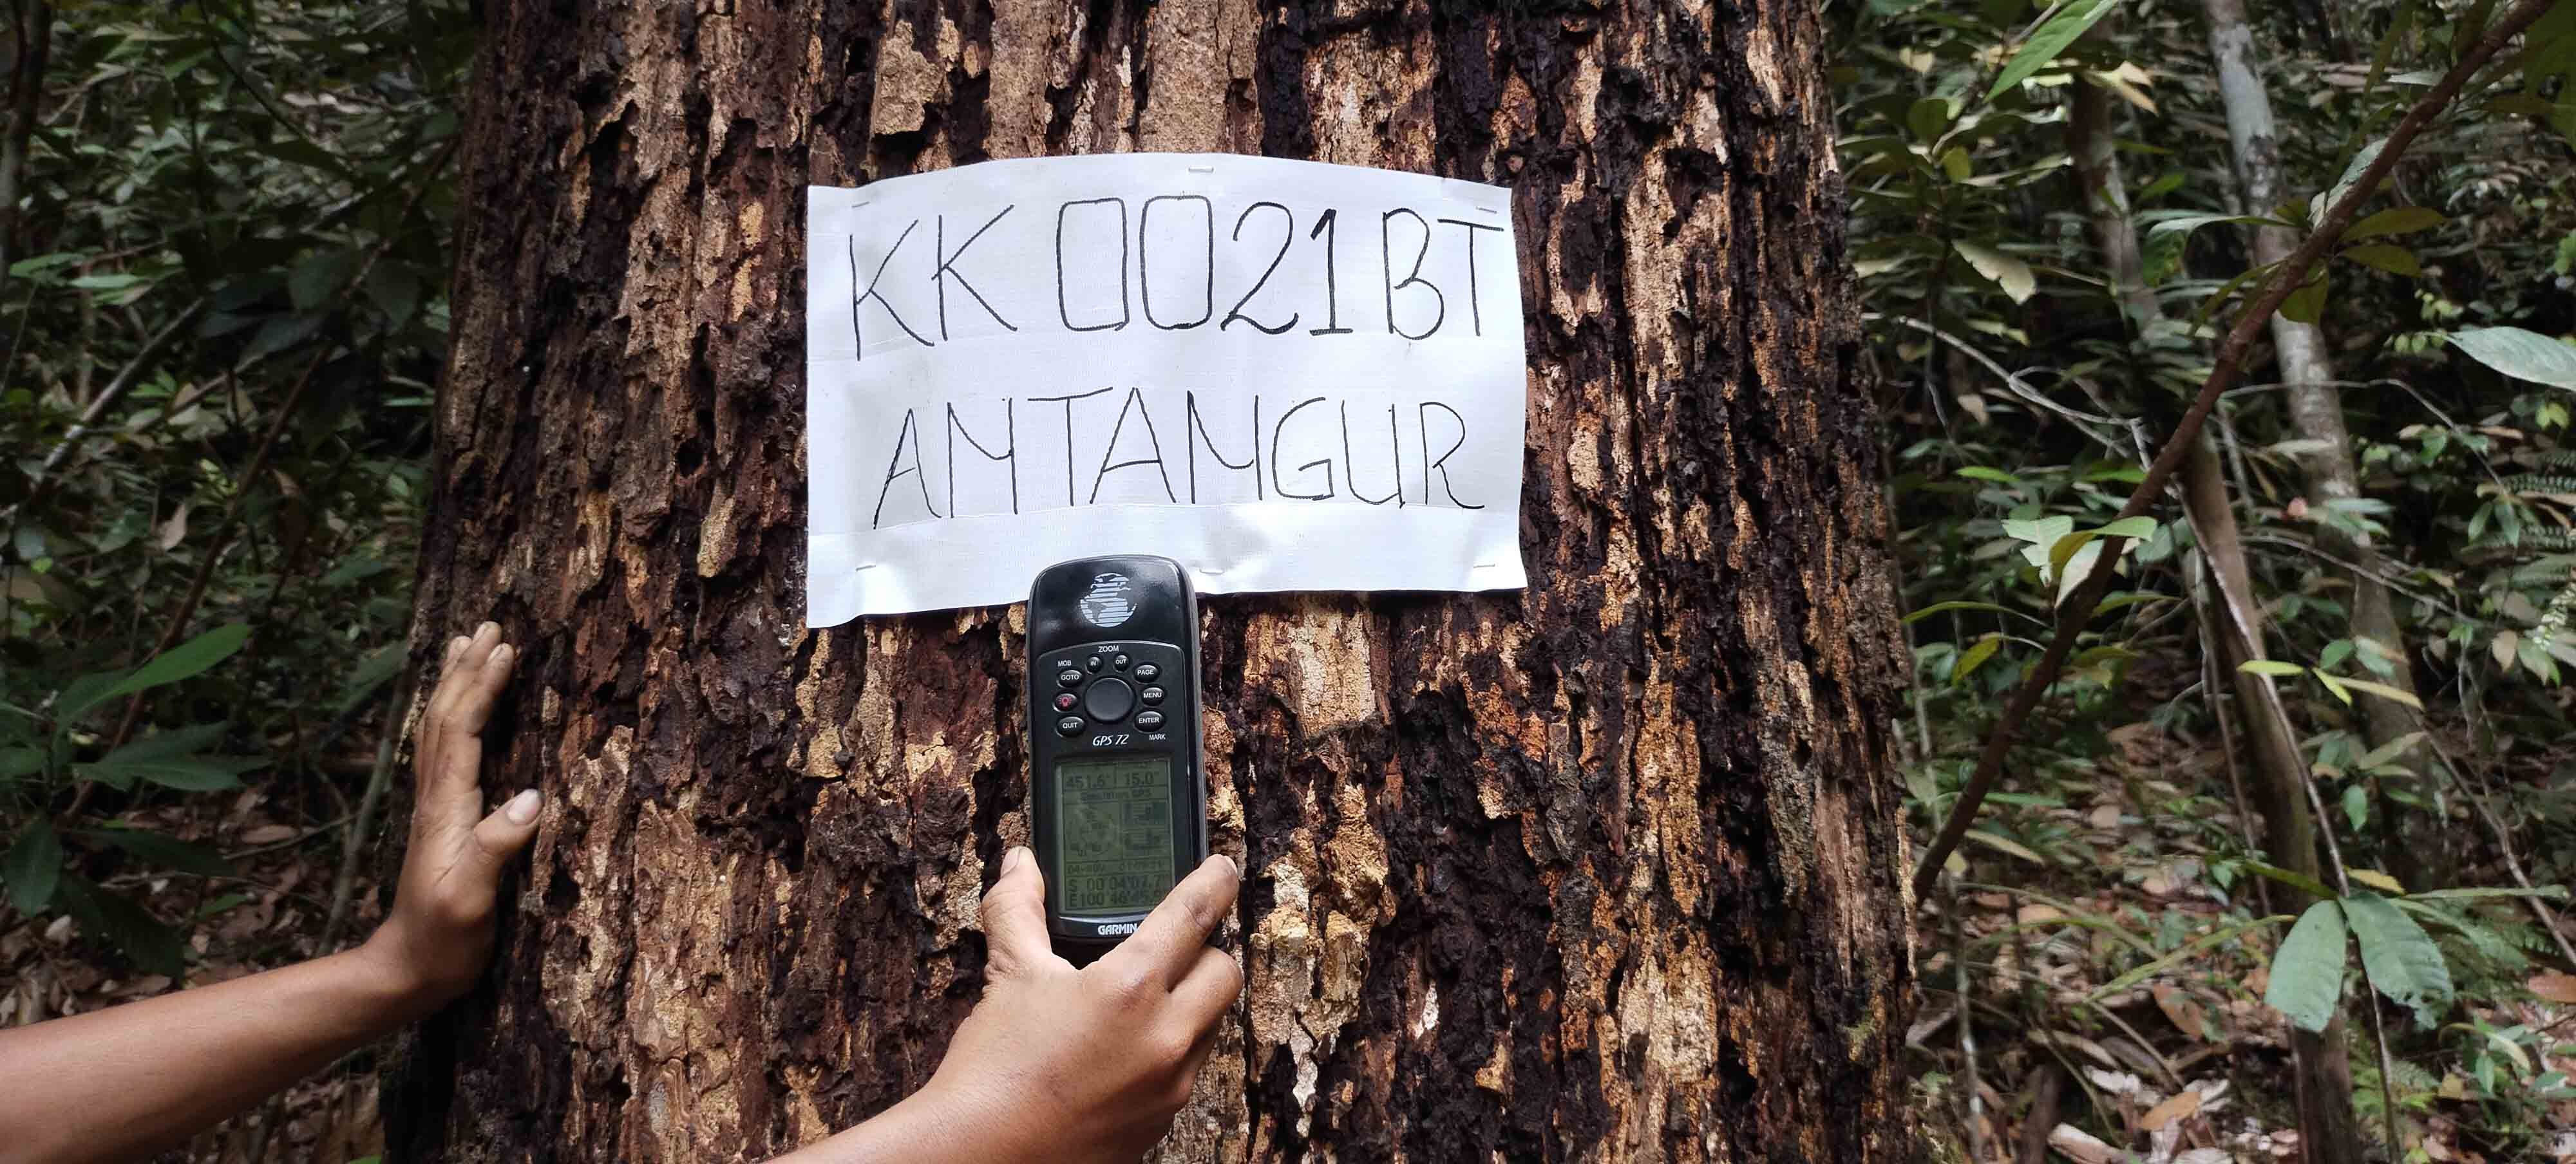 KK 0021 BT
ANTANGUR
ZOOM
MOB
IN
OUT
GOTO
PAGE
MENU
QUIT
ENTER
MARK
GPS 72
451.6' 15.0'
GARMIN